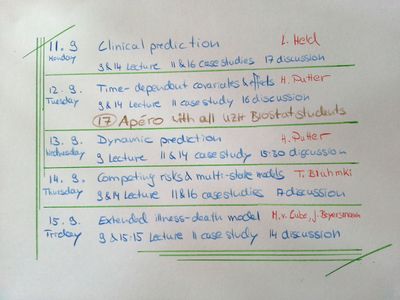 11. 9 Clinical prediction L. Held
Monday 9 & 14 Lecture 11 & 16 case studies 17 discussion
12. 9. Time-dependent covariates & effects H. Putter
Tuesday 9 & 14 Lecture 11 case study 16 discussion
17 Apéro with all UZH Biostat students
13. 9. Dynamic prediction H. Putter
Wednesday 9 Lecture 11 & 14 case study 15:30 discussion
14. 9. Competing risks & multi-state models T. Bluhmki
Thursday 9 & 14 Lecture 11 & 16 case studies 17 discussion
15. 9. Extended illness-death model M. v. Cube, J. Beyersmann
Friday 9 & 15:15 Lecture 11 case study 14 discussion